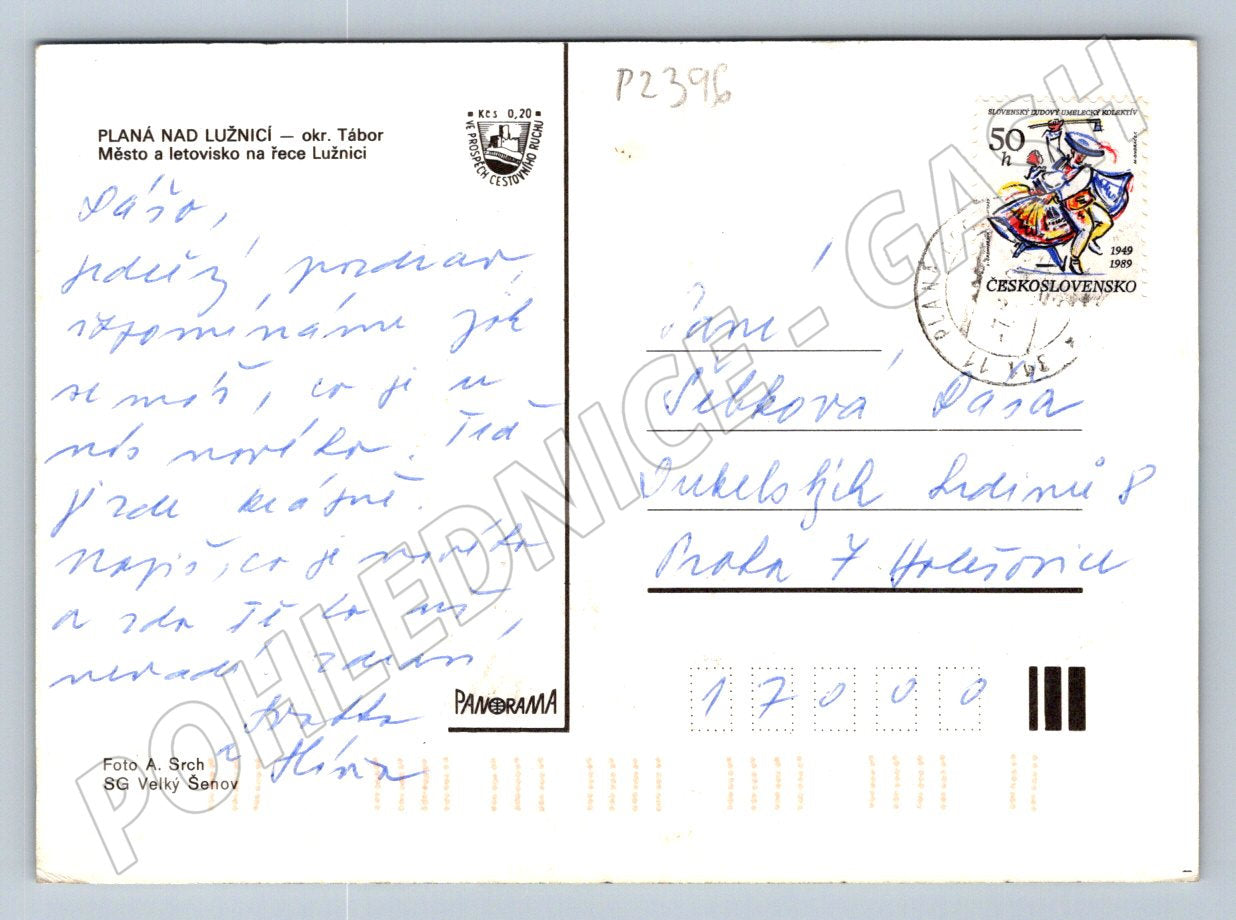 PLANÁ NAD LUŽNICÍ — okr. Tábor
Město a letovisko na řece Lužnici
Kčs 0,20
VE PROSPĚCH CESTOVNÍHO RUCHU
Dášo,
srdečný pozdrav,
vzpomínáme jak
se máš, co je u
nás nového. Teď
je zde krásně.
Napiš, co je nového
a zda Tě to už
nevadí
a
PANORAMA
Foto A. Srch
SG Velký Šenov
P2396
SLOVENSKÝ ĽUDOVÝ UMELECKÝ KOLEKTÍV
50
h
1949
1989
ČESKOSLOVENSKO
391 11 PLANÁ
Paní
Dáša
Dukelských hrdinů 8
Praha 7 Holešovice
17000
POHLEDNICE - GASH